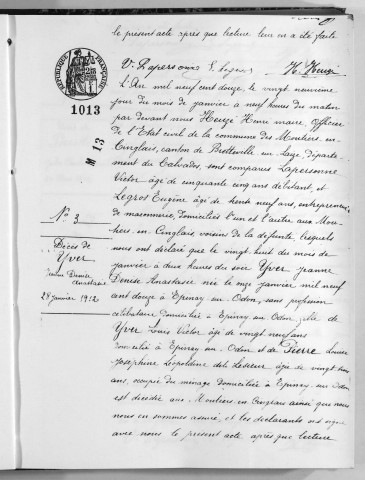 le présent acte après que lecture leur en a été faite
V. Lapersonne E. Legros H. Heuzé
RÉPUBLIQUE FRANÇAISE
1013
M 13
L'An mil neuf cent douze, le vingt neuvième
jour du mois de janvier à neuf heures du matin
par devant nous Heuzé Henri maire, Officier
de l'Etat civil de la commune des Moutiers-en-
Cinglais, canton de Bretteville-sur-Laize, Départe-
ment du Calvados, sont comparus Lapersonne
Victor âgé de cinquante cinq ans débitant, et
Legros Eugène âgé de trente neuf ans, entrepreneur
de maçonnerie, domiciliés l'un et l'autre aux Mou-
tiers en Cinglais, voisins de la défunte, lesquels
nous ont déclaré que le vingt huit du mois de
janvier à deux heures du soir Yver Jeanne
Denise Anastasie née le onze janvier mil neuf
cent douze à Epinay sur Odon, sans profession
célibataire domiciliée à Epinay sur Odon, fille de
Yver Louis Victor âgé de vingt neuf ans
domicilié à Epinay sur Odon et de Pierre Louise
Joséphine Léopoldine âgée de vingt
ans, occupée du ménage domiciliée à Epinay sur Odon
est décédée aux Moutiers en Cinglais ainsi que nous
nous en sommes assuré, et les déclarants ont signé
avec nous le présent acte après que lecture
No 3
Décès de
Yver
Jeanne Denise
Anastasie
28 janvier 1912